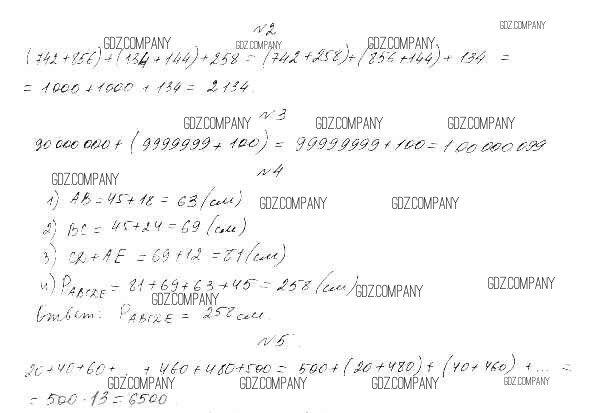 №2
GDZ.COMPANY
GDZ.COMPANY GDZ.COMPANY GDZ.COMPANY
(742+856)+(134+144)+258=(742+258)+(856+144)+134 =
= 1000+1000 +134= 2134.
№3
GDZ.COMPANY GDZ.COMPANY GDZ.COMPANY
90 000 000+(9999999+100)= 99999999+100=100 000 099
№4
GDZ.COMPANY
1) AB=45+18= 63(см)
GDZ.COMPANY GDZ.COMPANY
2) BC=45+24=69(см)
3) CD+AE =69+12=81(см)
4) P_ABCDE=81+69+63+45=258(см)
GDZ.COMPANY GDZ.COMPANY GDZ.COMPANY
Ответ: P_ABCDE = 258см.
№5.
20+40+60+... +460+480+500= 500+(20+480)+(40+460) +... =
GDZ.COMPANY GDZ.COMPANY GDZ.COMPANY GDZ.COMPANY
= 500·13=6500.